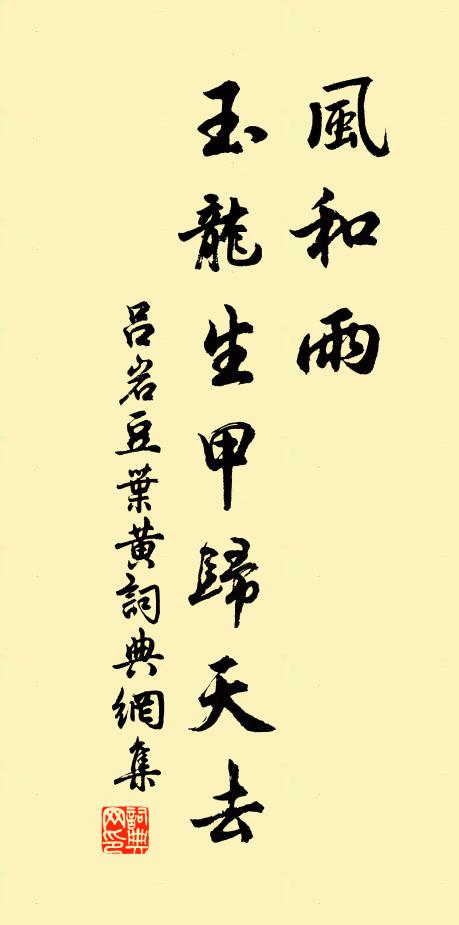 風和雨
玉龍生甲歸天去
吕岩豆葉黄詞典網集
詞典
网印